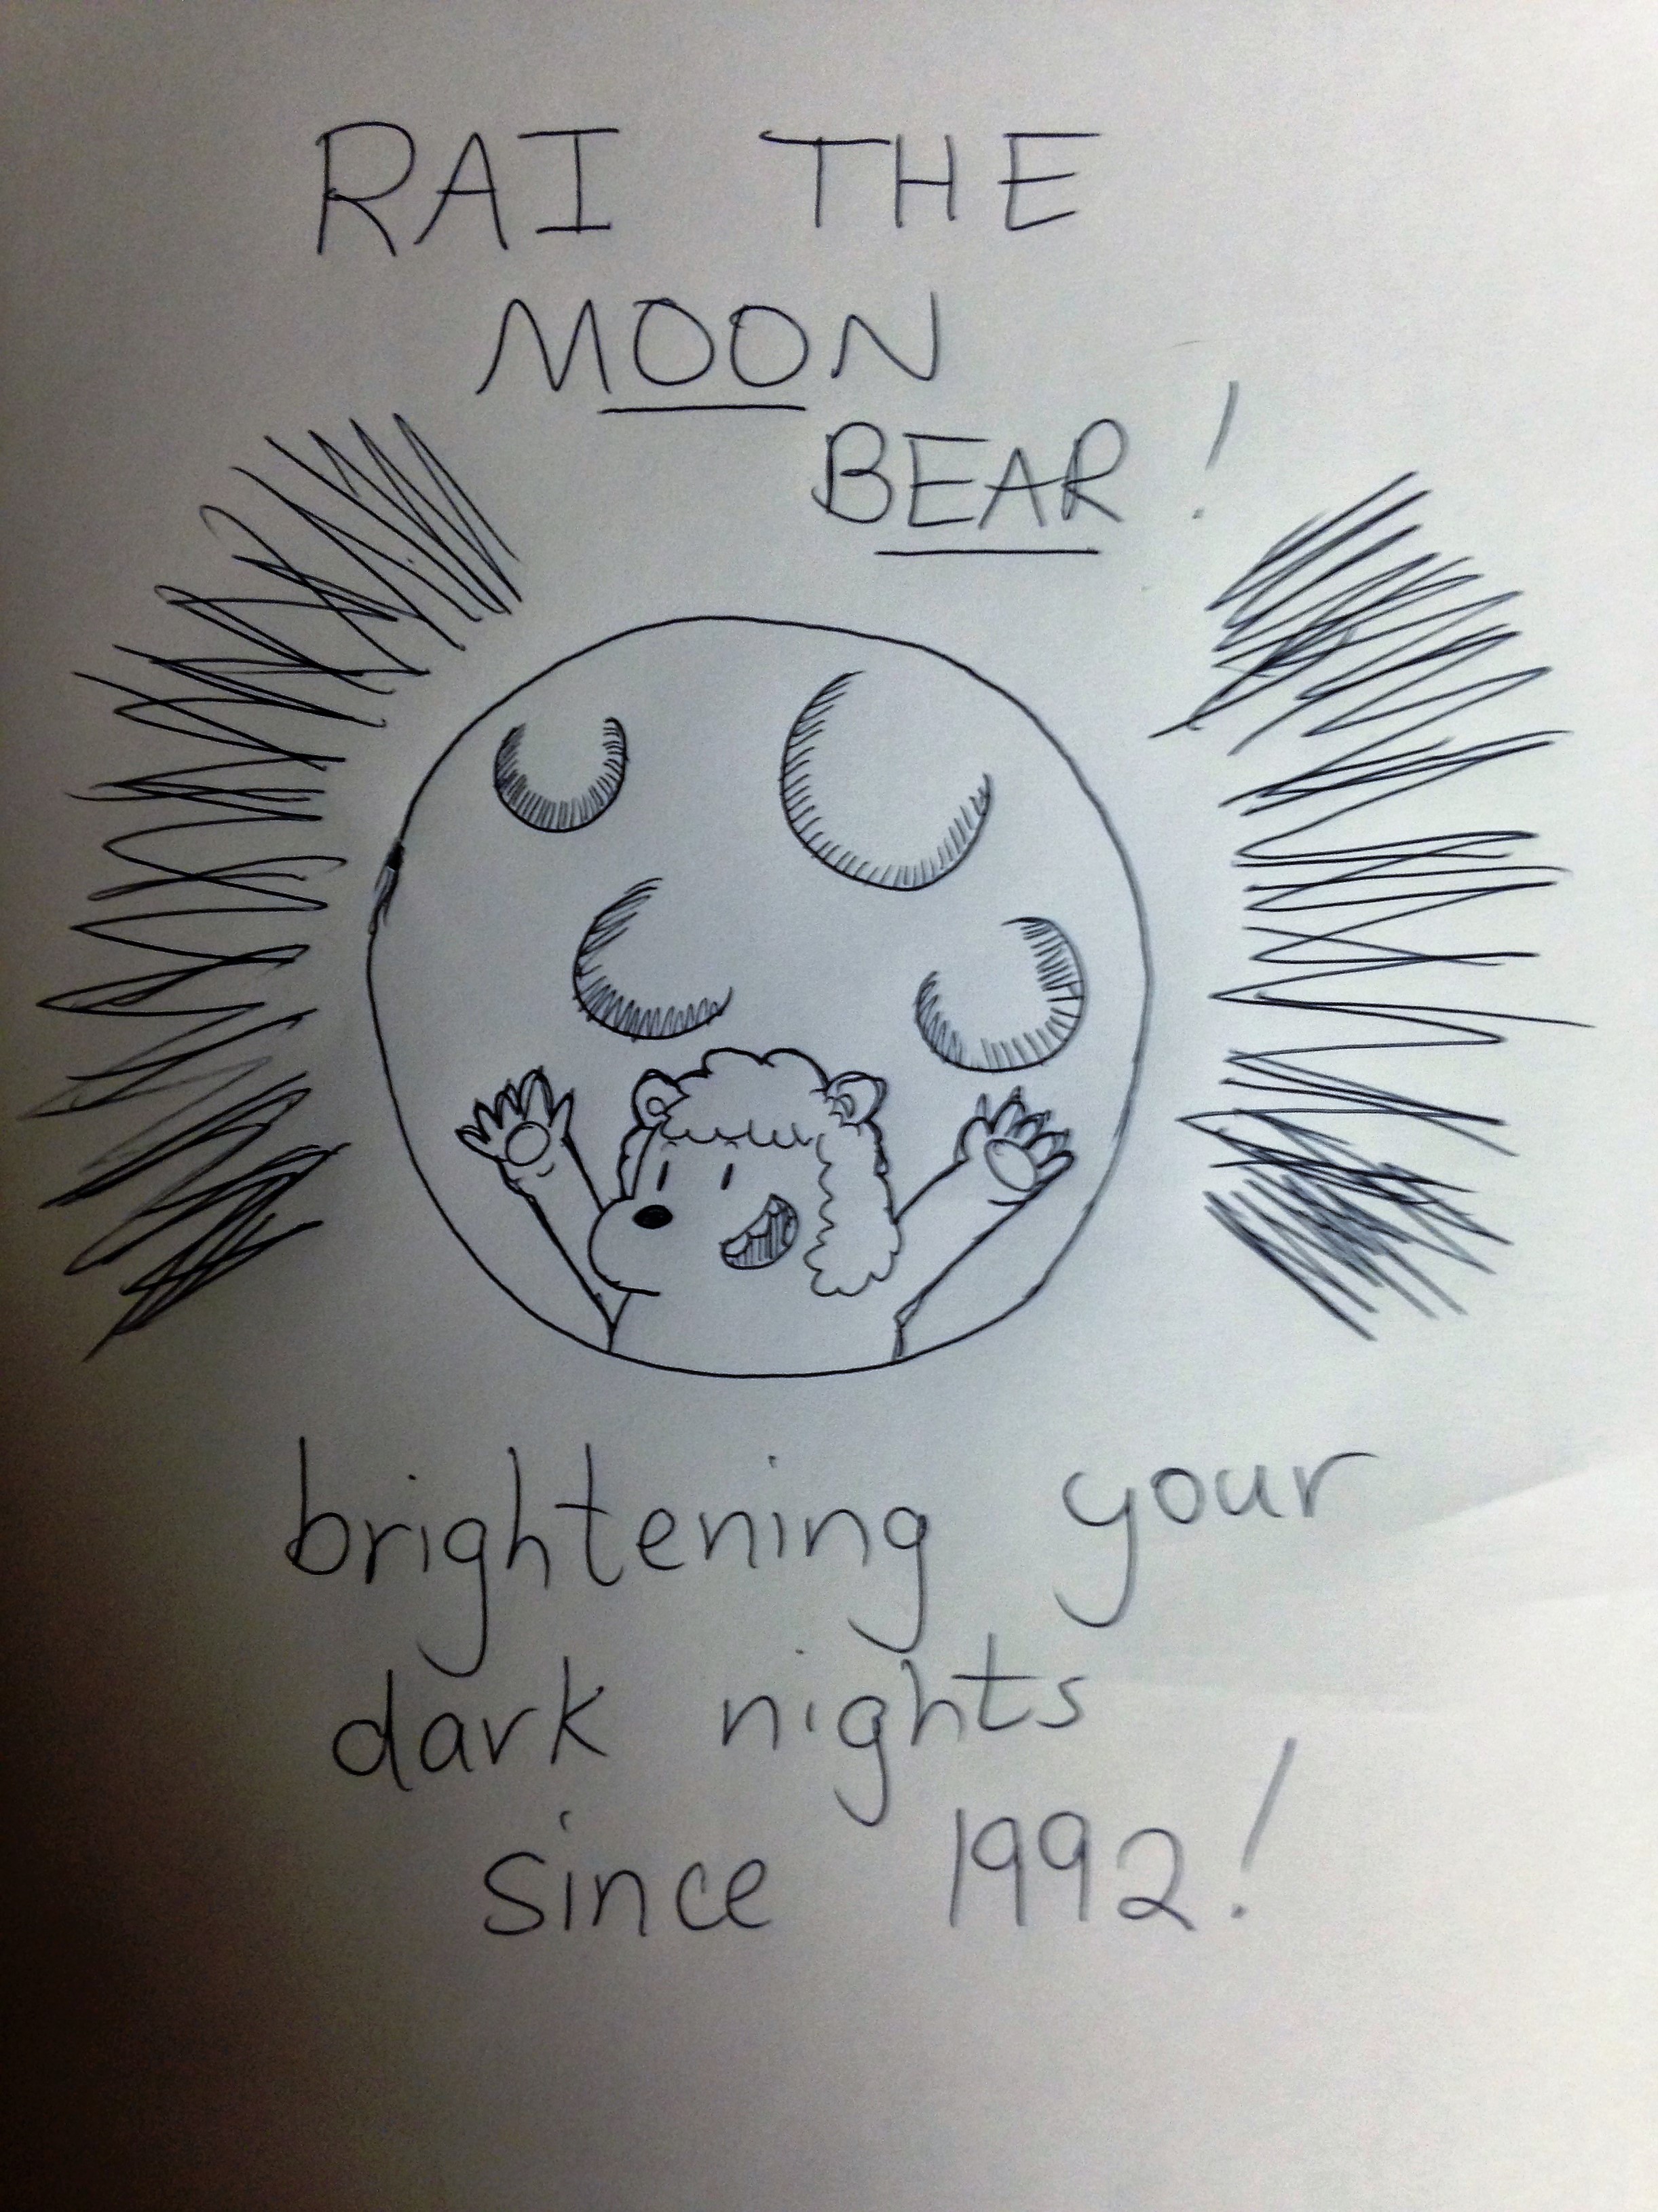 RAI THE
MOON
BEAR!
brightening your
dark nights
since 1992!